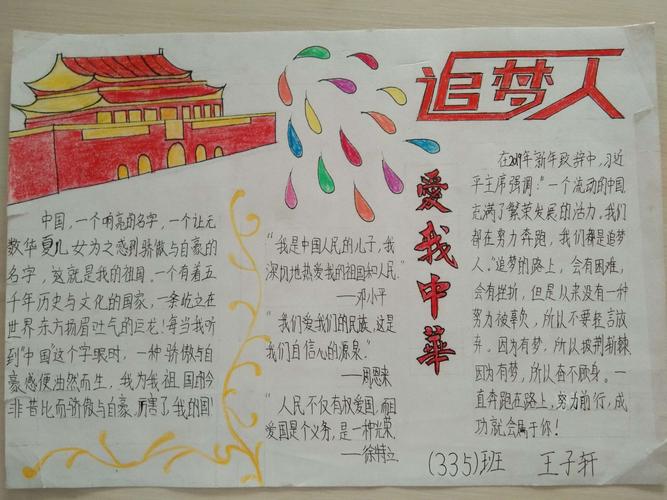 追梦人
爱我中華
中国，一个响亮的名字，一个让无
数华夏儿女为之感到骄傲与自豪的
名字，这就是我的祖国。一个有着五
千年历史与文化的国家，一条屹立在
世界东方扬眉吐气的巨龙！每当我听
到"中国"这个字眼时，一种骄傲与自
豪感便油然而生，我为我祖国的今
非昔比而骄傲与自豪，厉害了，我的国!
"我是中国人民的儿子，我
深沉地热爱我的祖国和人民."
——邓小平
"我们爱我们的民族，这是
我们自信心的源泉."
——周恩来
"人民不仅有权爱国，而且
爱国是个义务，是一种光荣.
——徐特立
在2019年新年致辞中，习近
平主席强调："一个流动的中国
充满了繁荣发展的活力。我们
都在努力奔跑，我们都是追梦
人。"追梦的路上，会有困难，
会有挫折，但是从来没有一种
努力被辜负，所以不要轻言放
弃。因为有梦，所以披荆斩棘
因为有梦，所以奋不顾身。一
直奔跑在路上，努力前行，成
功就会属于你！
(335)班 王子轩